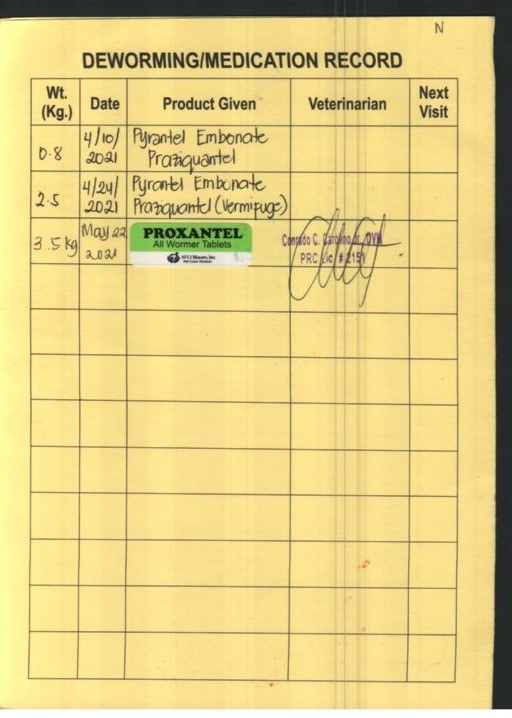 N
DEWORMING/MEDICATION RECORD
Wt. (Kg.) Date Product Given Veterinarian Next Visit
0.8 4/10/2021 Pyrantel Embonate
Praziquantel
2.5 4/24/2021 Pyrantel Embonate
Praziquantel (Vermifuge)
3.5 kg May 22 2021 PROXANTEL
All Wormer Tablets
Conrado C. DVM
PRC Lic. # 2151